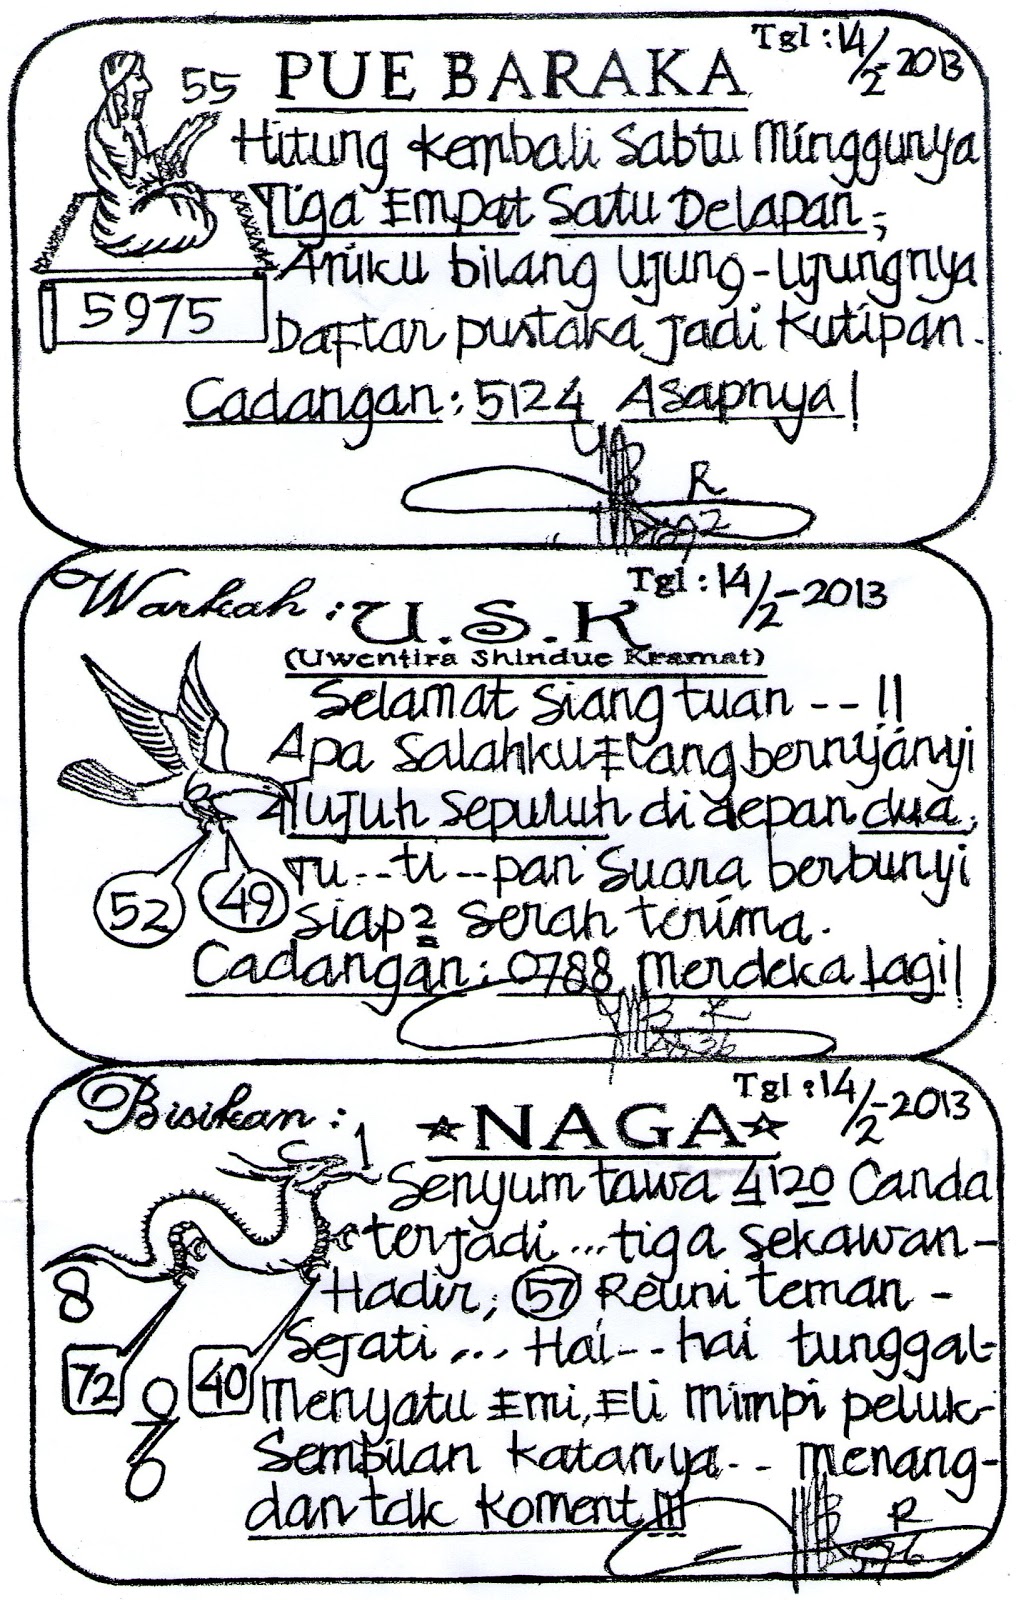 Tgl : 14/2-2013
55 PUE BARAKA
Hitung Kembali Sabtu Minggunya
Tiga Empat Satu Delapan;
Aniku bilang Ujung-Ujungnya
5975
Daftar Pustaka Jadi Kutipan.
Cadangan: 5124 Asapnya!
R
Warkah : U.S.K
Tgl : 14/2-2013
(Uwentira Shindue Kramat)
Selamat Siang tuan --!!
Apa Salahku Elang bernyanyi
Tujuh Sepuluh di depan dua,
Tu--ti--pan Suara berbunyi
52 49
Siap2 Serah terima.
Cadangan: 0788 Merdeka Lagi!
Bisikan :
Tgl : 14/2-2013
☆NAGA☆
1
Senyum tawa 4120 Canda
terjadi...tiga Sekawan-
8
Hadir, 57 Reuni teman -
Sejati... Hai--hai tunggal-
72 40
Menyatu Emi, Eli Mimpi peluk-
9/6
Sembilan Katanya-- Menang-
dan tdk Koment!!!
R